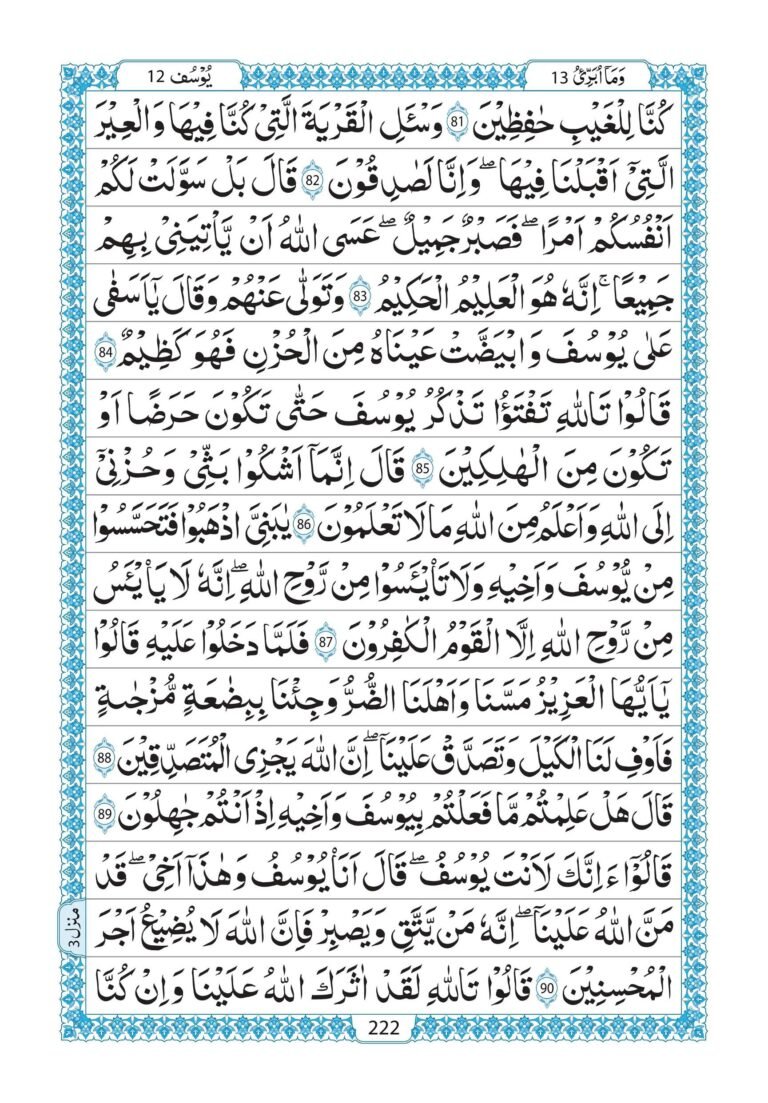 وَمَاۤ اُبَرِّئُ 13
يُوْسُف 12
كُنَّا لِلْغَيْبِ حٰفِظِيْنَ 81 وَسْـَٔلِ الْقَرْيَةَ الَّتِيْ كُنَّا فِيْهَا وَالْعِيْرَ
الَّتِيْۤ اَقْبَلْنَا فِيْهَا ؕ وَاِنَّا لَصٰدِقُوْنَ 82 قَالَ بَلْ سَوَّلَتْ لَكُمْ
اَنْفُسُكُمْ اَمْرًا ؕ فَصَبْرٌ جَمِيْلٌ ؕ عَسَى اللّٰهُ اَنْ يَّاْتِيَنِيْ بِهِمْ
جَمِيْعًا ۚ اِنَّهٗ هُوَ الْعَلِيْمُ الْحَكِيْمُ 83 وَتَوَلّٰى عَنْهُمْ وَقَالَ يٰۤاَسَفٰى
عَلٰى يُوْسُفَ وَابْيَضَّتْ عَيْنَاهُ مِنَ الْحُزْنِ فَهُوَ كَظِيْمٌ 84
قَالُوْا تَاللّٰهِ تَفْتَؤُا تَذْكُرُ يُوْسُفَ حَتّٰى تَكُوْنَ حَرَضًا اَوْ
تَكُوْنَ مِنَ الْهٰلِكِيْنَ 85 قَالَ اِنَّمَاۤ اَشْكُوْا بَثِّيْ وَحُزْنِيْۤ
اِلَى اللّٰهِ وَاَعْلَمُ مِنَ اللّٰهِ مَا لَا تَعْلَمُوْنَ 86 يٰبَنِيَّ اذْهَبُوْا فَتَحَسَّسُوْا
مِنْ يُّوْسُفَ وَاَخِيْهِ وَلَا تَا۟يْـَٔسُوْا مِنْ رَّوْحِ اللّٰهِ ؕ اِنَّهٗ لَا يَا۟يْـَٔسُ
مِنْ رَّوْحِ اللّٰهِ اِلَّا الْقَوْمُ الْكٰفِرُوْنَ 87 فَلَمَّا دَخَلُوْا عَلَيْهِ قَالُوْا
يٰۤاَيُّهَا الْعَزِيْزُ مَسَّنَا وَاَهْلَنَا الضُّرُّ وَجِئْنَا بِبِضٰعَةٍ مُّزْجٰىةٍ
فَاَوْفِ لَنَا الْكَيْلَ وَتَصَدَّقْ عَلَيْنَا ؕ اِنَّ اللّٰهَ يَجْزِي الْمُتَصَدِّقِيْنَ 88
قَالَ هَلْ عَلِمْتُمْ مَّا فَعَلْتُمْ بِيُوْسُفَ وَاَخِيْهِ اِذْ اَنْتُمْ جٰهِلُوْنَ 89
قَالُوْۤا ءَاِنَّكَ لَاَنْتَ يُوْسُفُ ؕ قَالَ اَنَا يُوْسُفُ وَهٰذَاۤ اَخِيْ ؕ قَدْ
مَنَّ اللّٰهُ عَلَيْنَا ؕ اِنَّهٗ مَنْ يَّتَّقِ وَيَصْبِرْ فَاِنَّ اللّٰهَ لَا يُضِيْعُ اَجْرَ
الْمُحْسِنِيْنَ 90 قَالُوْا تَاللّٰهِ لَقَدْ اٰثَرَكَ اللّٰهُ عَلَيْنَا وَاِنْ كُنَّا
منزل 3
222